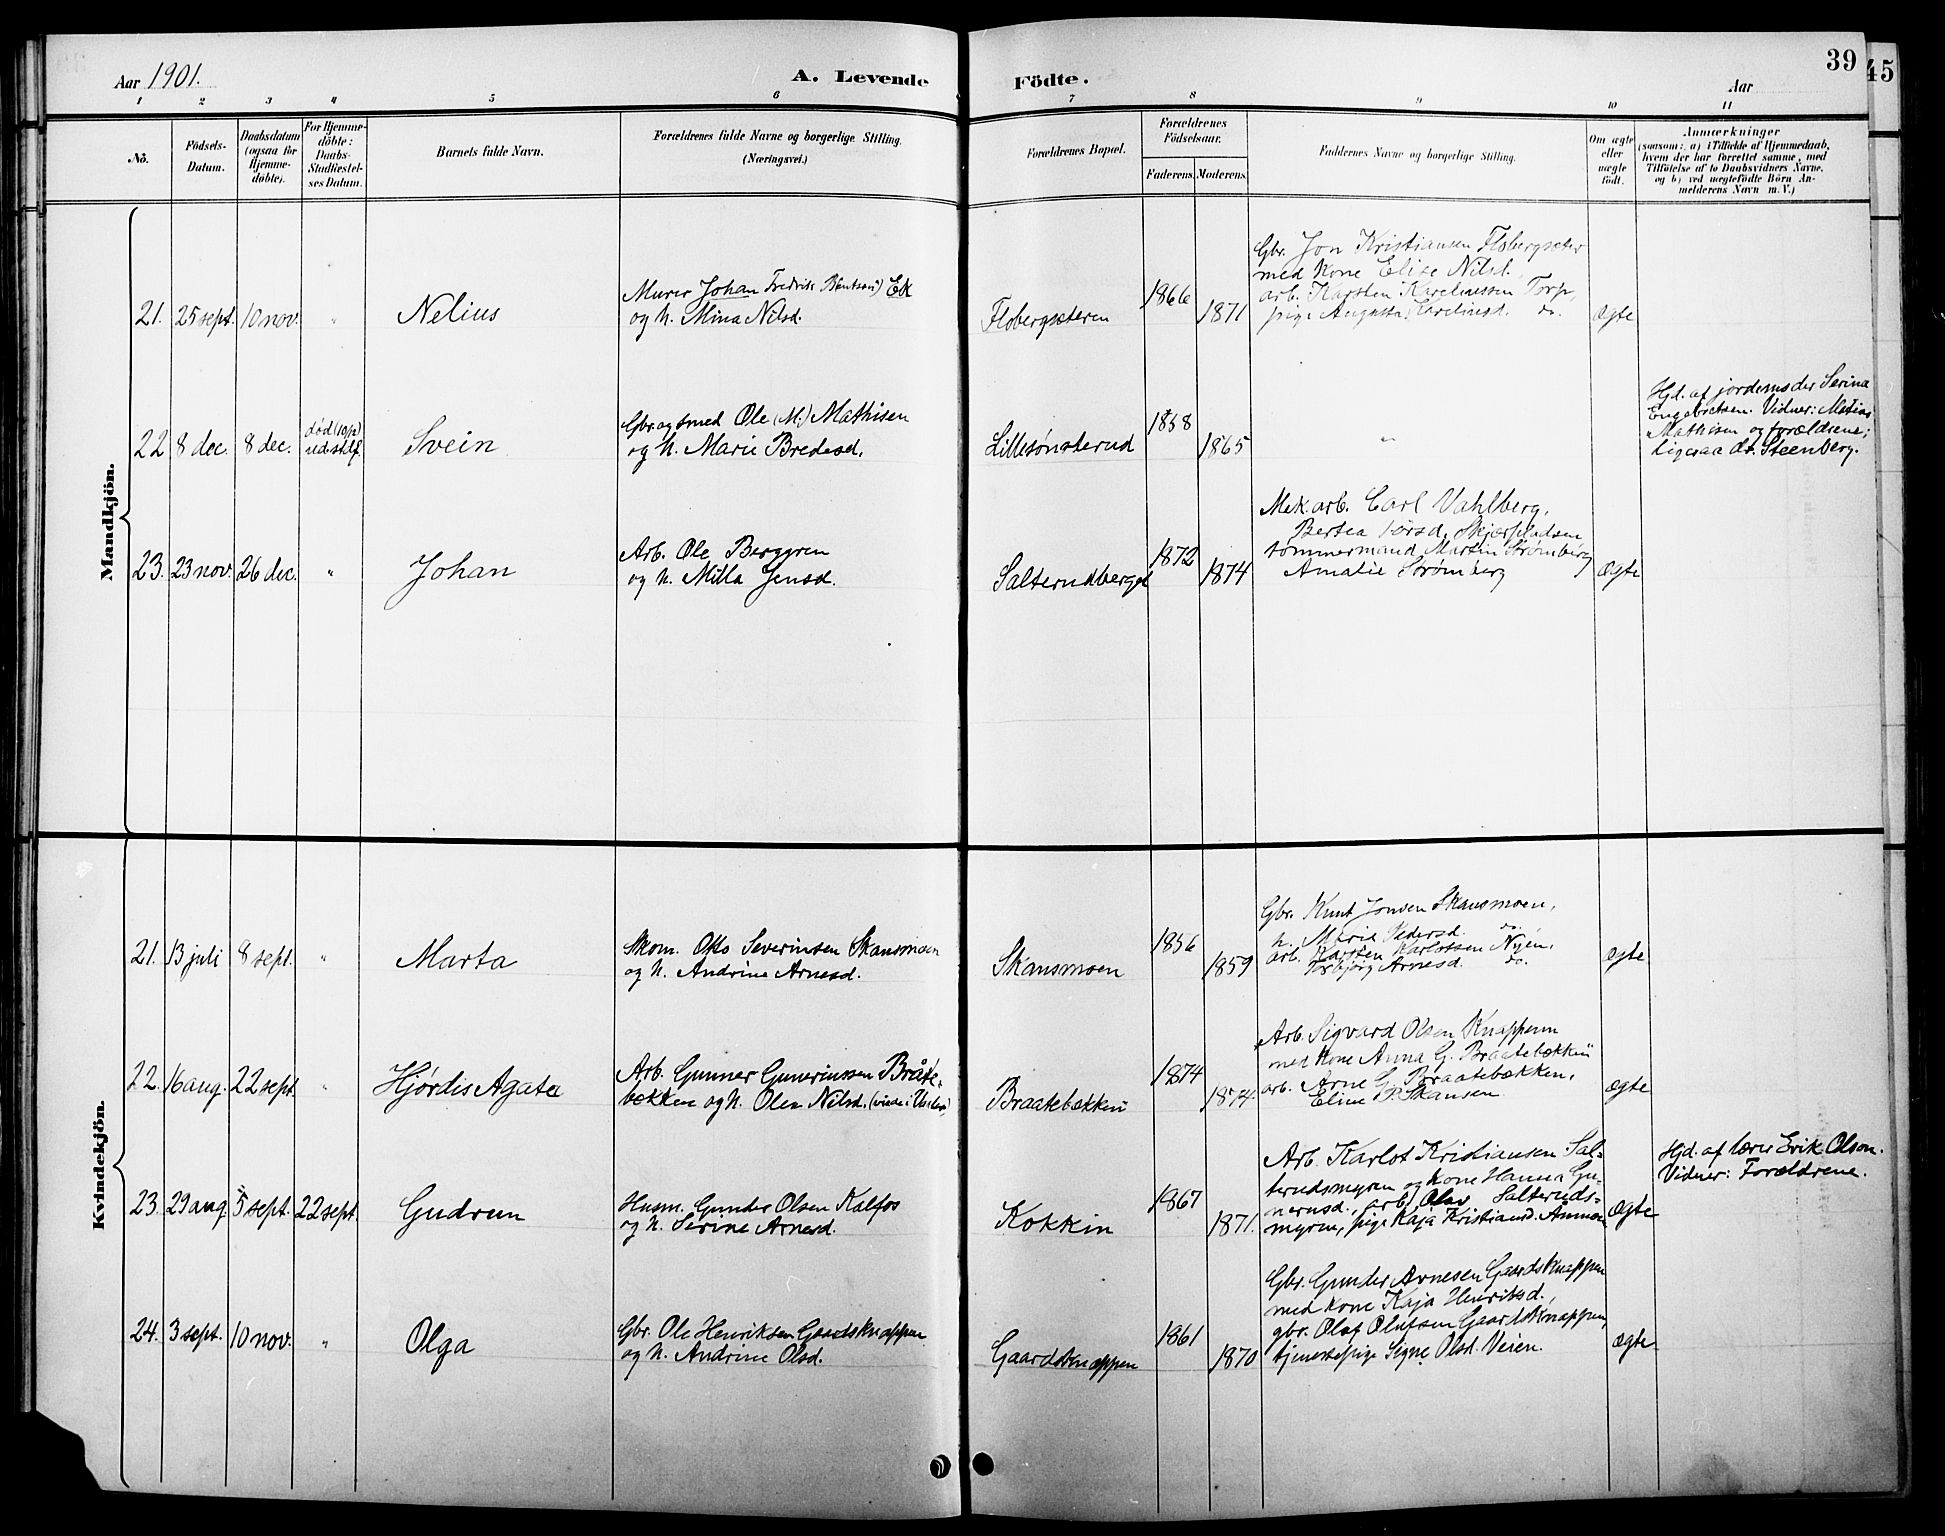 Aar 1901.
A. Levende
Födte.
Aar
39
45
1 2 3 4 5 6 7 8 9 10 11
No.
Födsels-
Datum.
Daabsdatum
(ogsaa for
Hjemme-
döbte).
For Hjemme-
döbte:
Daabs-
Stadfæstel-
ses Datum.
Barnets fulde Navn.
Forældrenes fulde Navne og borgerlige Stilling.
(Næringsvei.)
Forældrenes Bopæl.
Forældrenes
Födselsaar.
Faderens.
Moderens.
Faddernes Navne og borgerlige Stilling.
Om ægte
eller
uægte
födt.
Anmærkninger
(saasom: a) i Tilfælde af Hjemmedaab,
hvem der har forrettet samme, med
Tilföielse af to Daabsvidners Navne,
og b) ved uægtefödte Börn An-
melderens Navn m. V.)
Mandkjön.
21. 25 sept. 10 nov. " Nelius
Murer Johan Fredrik Bentsen) Ek
og h. Mina Nilsd.
Flobergsæteren
1866
1871
Gbr. Jon Kristiansen Flobergsæter
med kone Elise Nilsd.
arb. Karsten Karelinssen Torp,
pige Augusta Karelinsd. do.
ægte
22 8 dec. 8 dec.
død (10/12)
u. stdf.
Svein
Gbr. og smed Ole (M.) Mathisen
og h. Marie Bredesd.
Lillesønsterud
1858
1865
"
Hjd. af jordemoder Serina
Engebretsen. Vidner: Matias
Mathisen og forældrene;
ligesaa dr. Steenberg.
23. 23 nov. 26 dec. " Johan
Arb. Ole Berggren
og h. Milla Jensd.
Salterudberget
1872
1874
Mek. arb. Carl Vahlberg,
Bertea Torsd. Skjærpladsen
tømmermand Martin Strømberg
Amalie Strømberg
ægte
Kvindekjön.
21. 13 juli 8 sept. " Marta
Skom. Otto Severinsen Skansmoen
og h. Andrine Arnesd.
Skansmoen
1856
1859
Gbr. Knut Jonsen Skansmoen,
h. Marie Pedersd. do.
arb. Karsten Karlotssen Nyen,
Torbjørg Arnesd. do.
ægte
22. 16 aug. 22 sept. " Hjørdis Agata
Arb. Gunner Gunerinssen Bråte-
bækken og h. Olea Nilsd.
Braatebækken
1874
1874.
Arb. Sigvard Olsen Knappen
med kone Anna G. Braatebækken
arb. Arne G. Braatebækken,
Eline P. Skansen
ægte
23. 29 aug. 5 sept. 22 sept. Gudrun
Husm. Gunder Olsen Kalfos
og h. Serine Arnesd.
Kokkin
1867
1871.
Arb. Karlot Kristiansen Sal-
terudsmyren og kone Hanna Gu-
nerusd., arb. Olav Salteruds-
myren, pige Kaja Kristiansd.
ægte
Hjd. af lærer Erik Olson.
Vidner: Forældrene.
24. 3 sept. 10 nov. " Olga
Gbr. Ole Henriksen Gaardsknappen
og h. Andrine Olsd.
Gaardsknappen
1861
1870
Gbr. Gunder Arnesen Gaardsknappen
med kone Kaja Henriksd.,
gbr. Olaf Olufsen Gaardsknappen,
tjenestepige Signe Olsd. Veien.
ægte